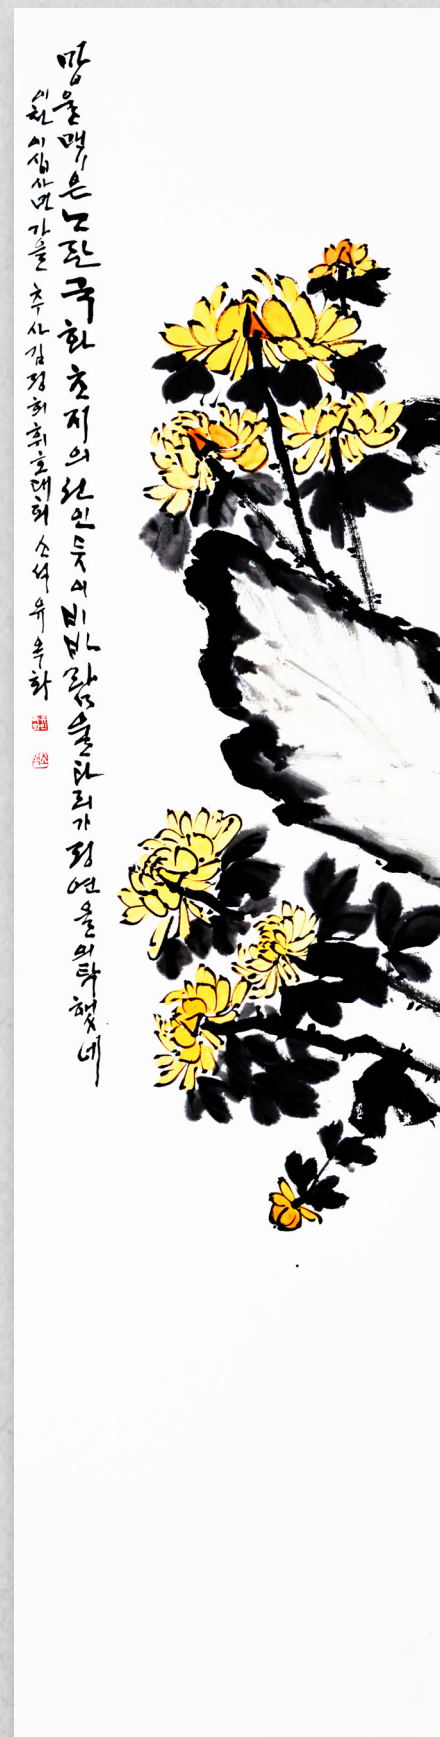 망울맺은노란국화초지의선인듯이비바람울타리가정연을의탁했네
이천이십사년가을 추사김정희휘호대회 소석 유옥화